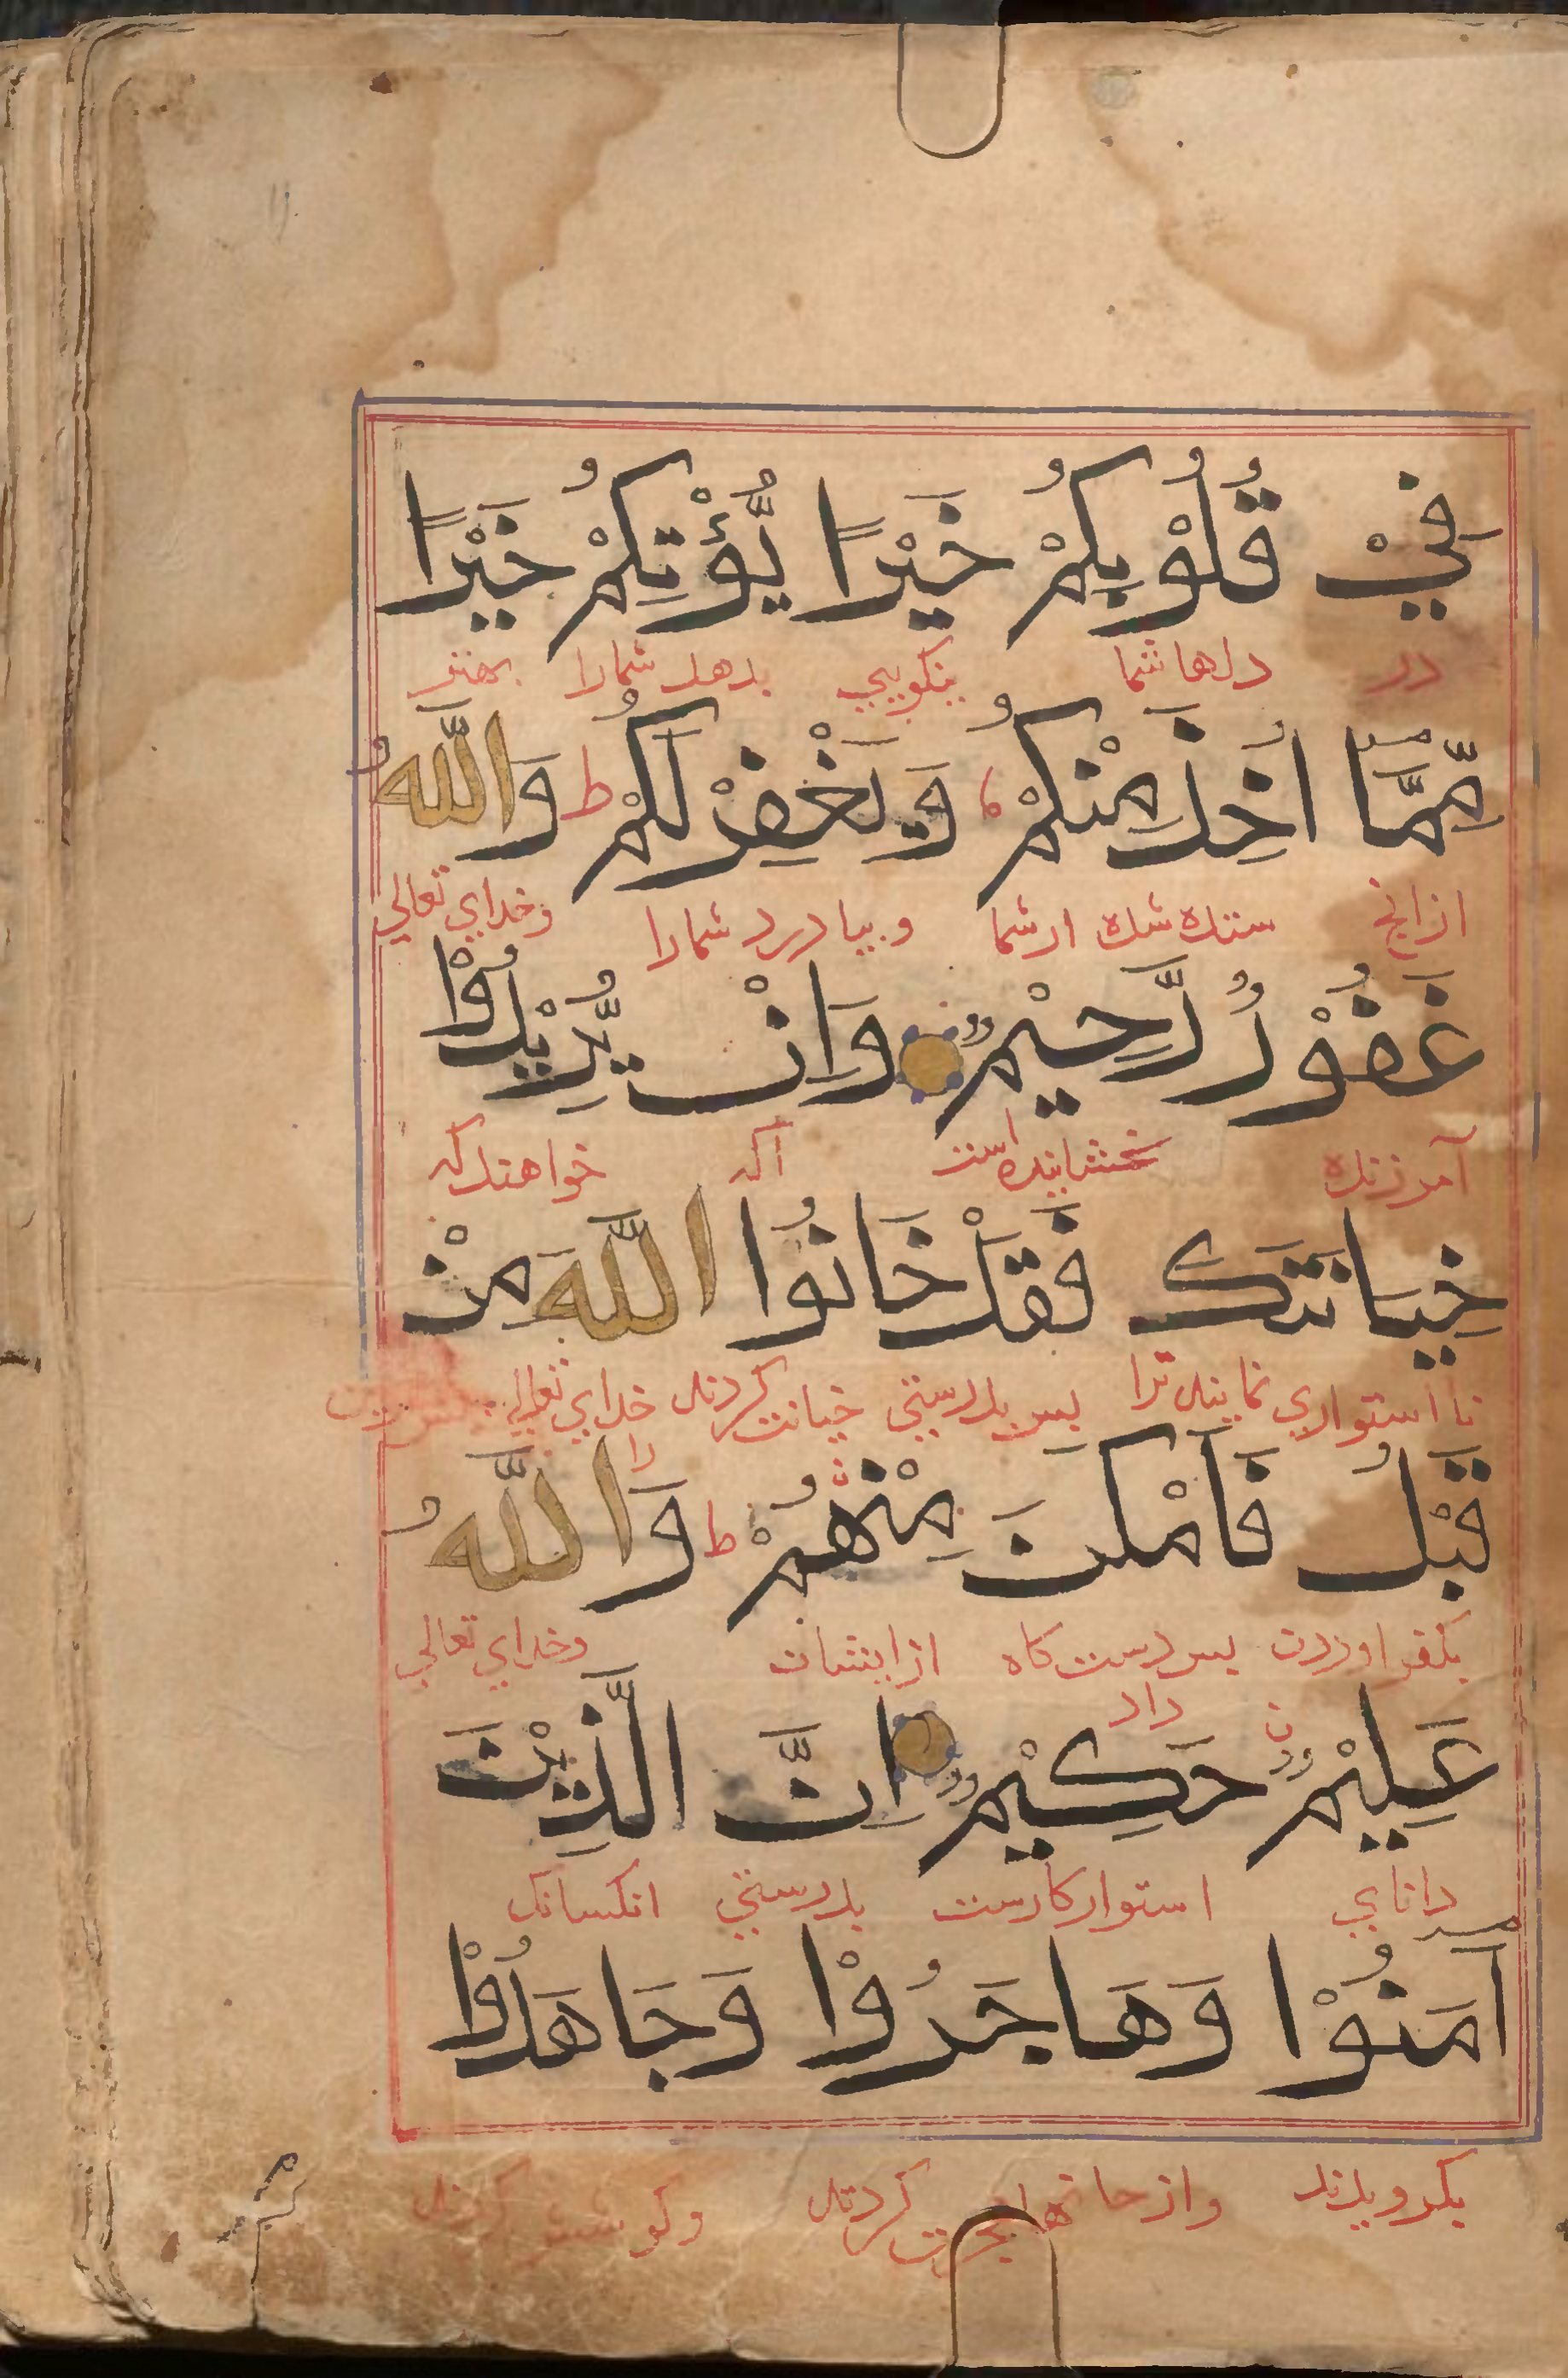 فِيْ قُلُوْبِكُمْ خَيْرًا يُّؤْتِكُمْ خَيْرًا
در دلها شما نيكويي بدهد شمارا بهتر
مِّمَّا اُخِذَ مِنْكُمْ وَيَغْفِرْ لَكُمْ ط وَاللّٰهُ
ازانچ ستده شده ازشما و بيامرزد شمارا وخداي تعالي
غَفُوْرٌ رَّحِيْمٌ وَاِنْ يُّرِيْدُوْا
آمرزنده بخشاينده است اكر خواهند كه
خِيَانَتَكَ فَقَدْ خَانُوا اللّٰهَ مِنْ
نا استواري نمايند ترا پس بدرستي خيانت كردند خداي تعالي را
قَبْلُ فَاَمْكَنَ مِنْهُمْ ط وَاللّٰهُ
بكفر اوردن پس دست كاه داد ازايشان وخداي تعالي
عَلِيْمٌ حَكِيْمٌ اِنَّ الَّذِيْنَ
داناي استوار كارست بدرستي انكسانك
آمَنُوْا وَهَاجَرُوْا وَجَاهَدُوْا
بكرويدند واز خانها هجرت كردند وكوشش كردند